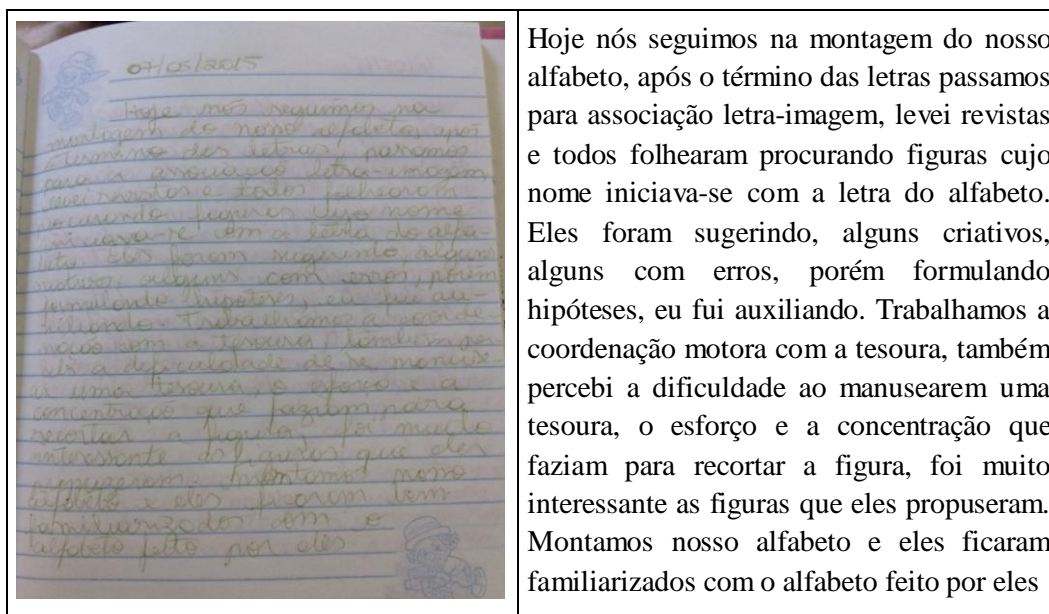 07/05/2015
Hoje nós seguimos na
montagem do nosso alfabeto, após
o termino das letras passamos
para a associação letra-imagem,
levei revistas e todos folhearam
procurando figuras cujo nome
iniciava-se com a letra do alfa-
beto. Eles foram sugerindo, alguns
criativos, alguns com erros, porém
formulando hipóteses, eu fui au-
xiliando. Trabalhamos a coorde
nação com a tesoura, também per
cebi a dificuldade de se manuse
ar uma tesoura, o esforço e a
concentração que faziam para
recortar a figura, foi muito
interessante as figuras que eles
propuseram. Montamos nosso
alfabeto e eles ficaram bem
familiarizados com o
alfabeto feito por eles
Hoje nós seguimos na montagem do nosso
alfabeto, após o término das letras passamos
para associação letra-imagem, levei revistas
e todos folhearam procurando figuras cujo
nome iniciava-se com a letra do alfabeto.
Eles foram sugerindo, alguns criativos,
alguns com erros, porém formulando
hipóteses, eu fui auxiliando. Trabalhamos a
coordenação motora com a tesoura, também
percebi a dificuldade ao manusearem uma
tesoura, o esforço e a concentração que
faziam para recortar a figura, foi muito
interessante as figuras que eles propuseram.
Montamos nosso alfabeto e eles ficaram
familiarizados com o alfabeto feito por eles